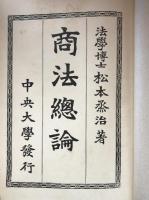 法學博士松本烝治著
商法總論
中央大學發行